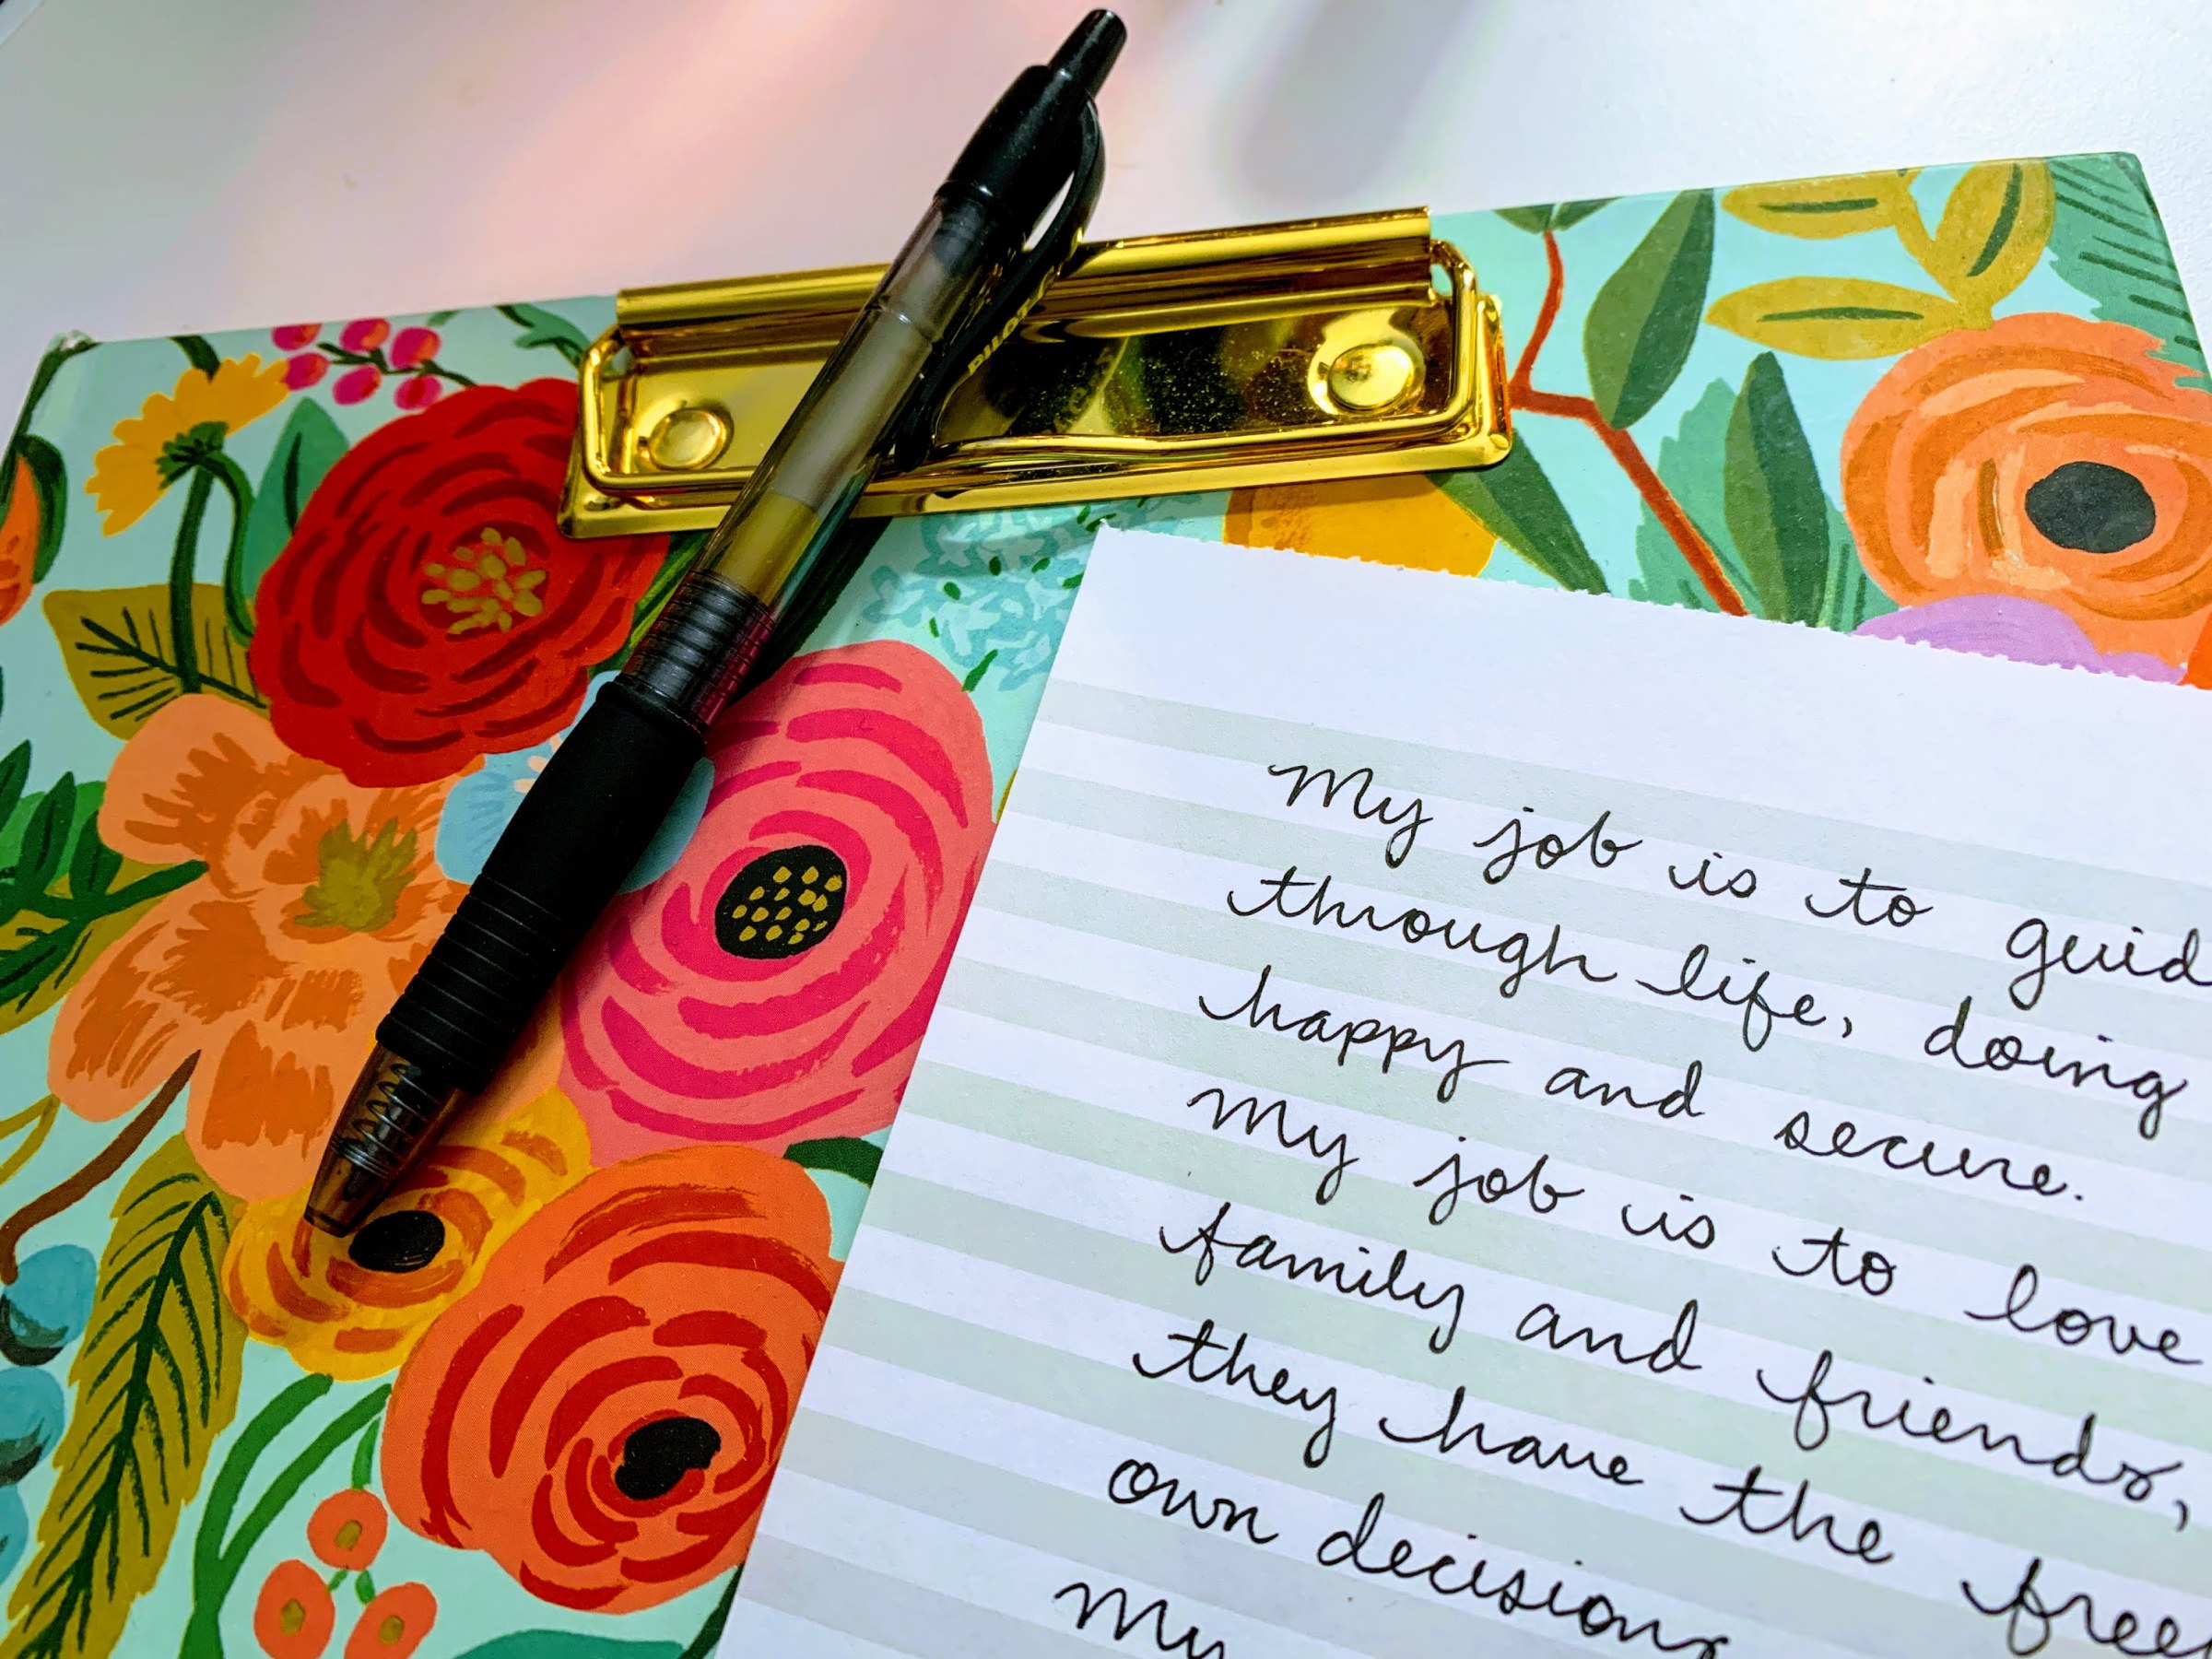 PILOT
My job is to guid
through life, doing
happy and secure.
My job is to love
family and friends,
they have the free
own decisions
My